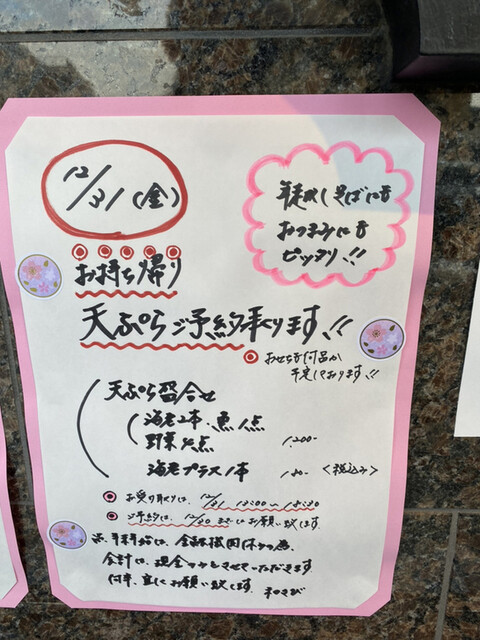 12/31(金)
年越しそばにも
おつまみにも
ピッタリ!!
お持ち帰り
天ぷらご予約承ります!!
おせちも何品か
予定しております!!
天ぷら盛合せ
海老2本・魚1点
野菜4点 1,200-
海老プラス1本 <税込み>
お受け取りは、12/31 12:00〜18:30
ご予約は、12/30 までにお願い致します。
金融機関休みの為
会計は、現金のみとさせていただきます
何卒、宜しくお願い致します。